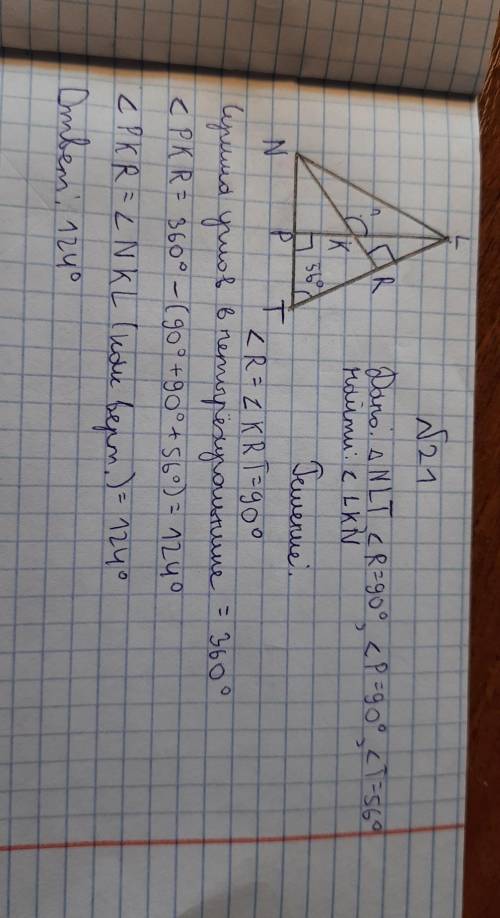 √21
Дано: △NLT, <R=90°, <P=90°, <T=56°
Найти: < LKN
Решение:
L
?
R
K
N
P
56°
T
<R=<KRT=90°
Сумма углов в четырёхугольнике = 360°
<PKR=360°-(90°+90°+56°)=124°
<PKR=<NKL (как верт.)=124°
Ответ: 124°